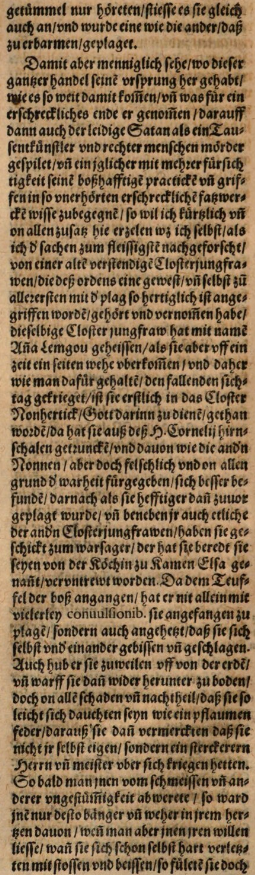 getümmel nur höreten/stiesse es sie gleich
auch an/vnd wurde eine wie die ander/daß
zu erbarmen/geplaget.
Damit aber menniglich sehe/wo dieser
gantzer handel seinē vrsprung her gehabt/
wie es so weit damit kom̄en/vn̄ was für ein
erschreckliches ende er genom̄en/darauff
dann auch der leidige Satan als ein Tau-
sentkünstler vnd rechter menschen mörder
gespilet/vn̄ ein jglicher mit mehrer fürsich
tigkeit seinē boßhafftigē practickē vn̄ grif-
fen in so vnerhörten erschrecklichē fatzwer-
ckē wisse zubegegnē/so wil ich kürtzlich vn̄
on allen zusatz hie erzelen wz ich selbst/als
ich d' sachen zum fleissigstē nachgeforscht/
von einer altē verstendigē Closterjungfra-
wen/die deß ordens eine gewest/vn̄ selbst zū
allerersten mit d' plag so hertiglich ist ange-
griffen wordē/gehört vnd vernom̄en habe/
dieselbige Closter jungfraw hat mit namē
An̄a Lemgou geheissen/als sie aber vff ein
zeit ein seiten wehe vberkom̄en/vnd daher
wie man dafür gehaltē/den fallenden siech-
tag gekrieget/ist sie erstlich in das Closter
Nonhertick/Gott darinn zu dienē/gethan
wordē/da hat sie auß deß H. Cornelij hirn-
schalen getrunckē/vnd dauon wie die and'n
Nonnen/aber doch felschlich vnd on allen
grund d' warheit fürgegeben/sich besser be-
fundē/darnach als sie hefftiger dan̄ zuuor
geplagt wurde/vn̄ beneben jr auch etliche
der and'n Closterjungfrawen/haben sie ge-
schickt zum warsager/der hat sie beredt sie
seyen von der Köchin zu Kamen Elsa ge-
nan̄t/vervntrewt worden. Da dem Teuf-
fel der boß angangen/hat er nit allein mit
vielerley conuulsionib. sie angefangen zu
plagē/sondern auch angehetzt/daß sie sich
selbst vnd einander gebissen vn̄ geschlagen.
Auch hub er sie zuweilen vff von der erdē/
vn̄ warff sie dan̄ wider herunter zu boden/
doch on allē schaden vn̄ nachtheil/daß sie so
leicht sich dauchten seyn wie ein pflaumen
feder/darauß sie dan̄ vermerckten daß sie
nicht jr selbst eigen/sondern ein sterckerern
Herrn vn̄ meister vber sich kriegen hetten.
So bald man jnen vom schmeissen vn̄ an-
derer vngestüm̄igkeit abwerete/so ward
jnē nur desto bänger vn̄ weher in jrem her-
tzen dauon/wen̄ man aber jnen jren willen
liesse/wan̄ sie sich schon selbst hart verletz-
ten mit stossen vnd beissen/so fületē sie doch